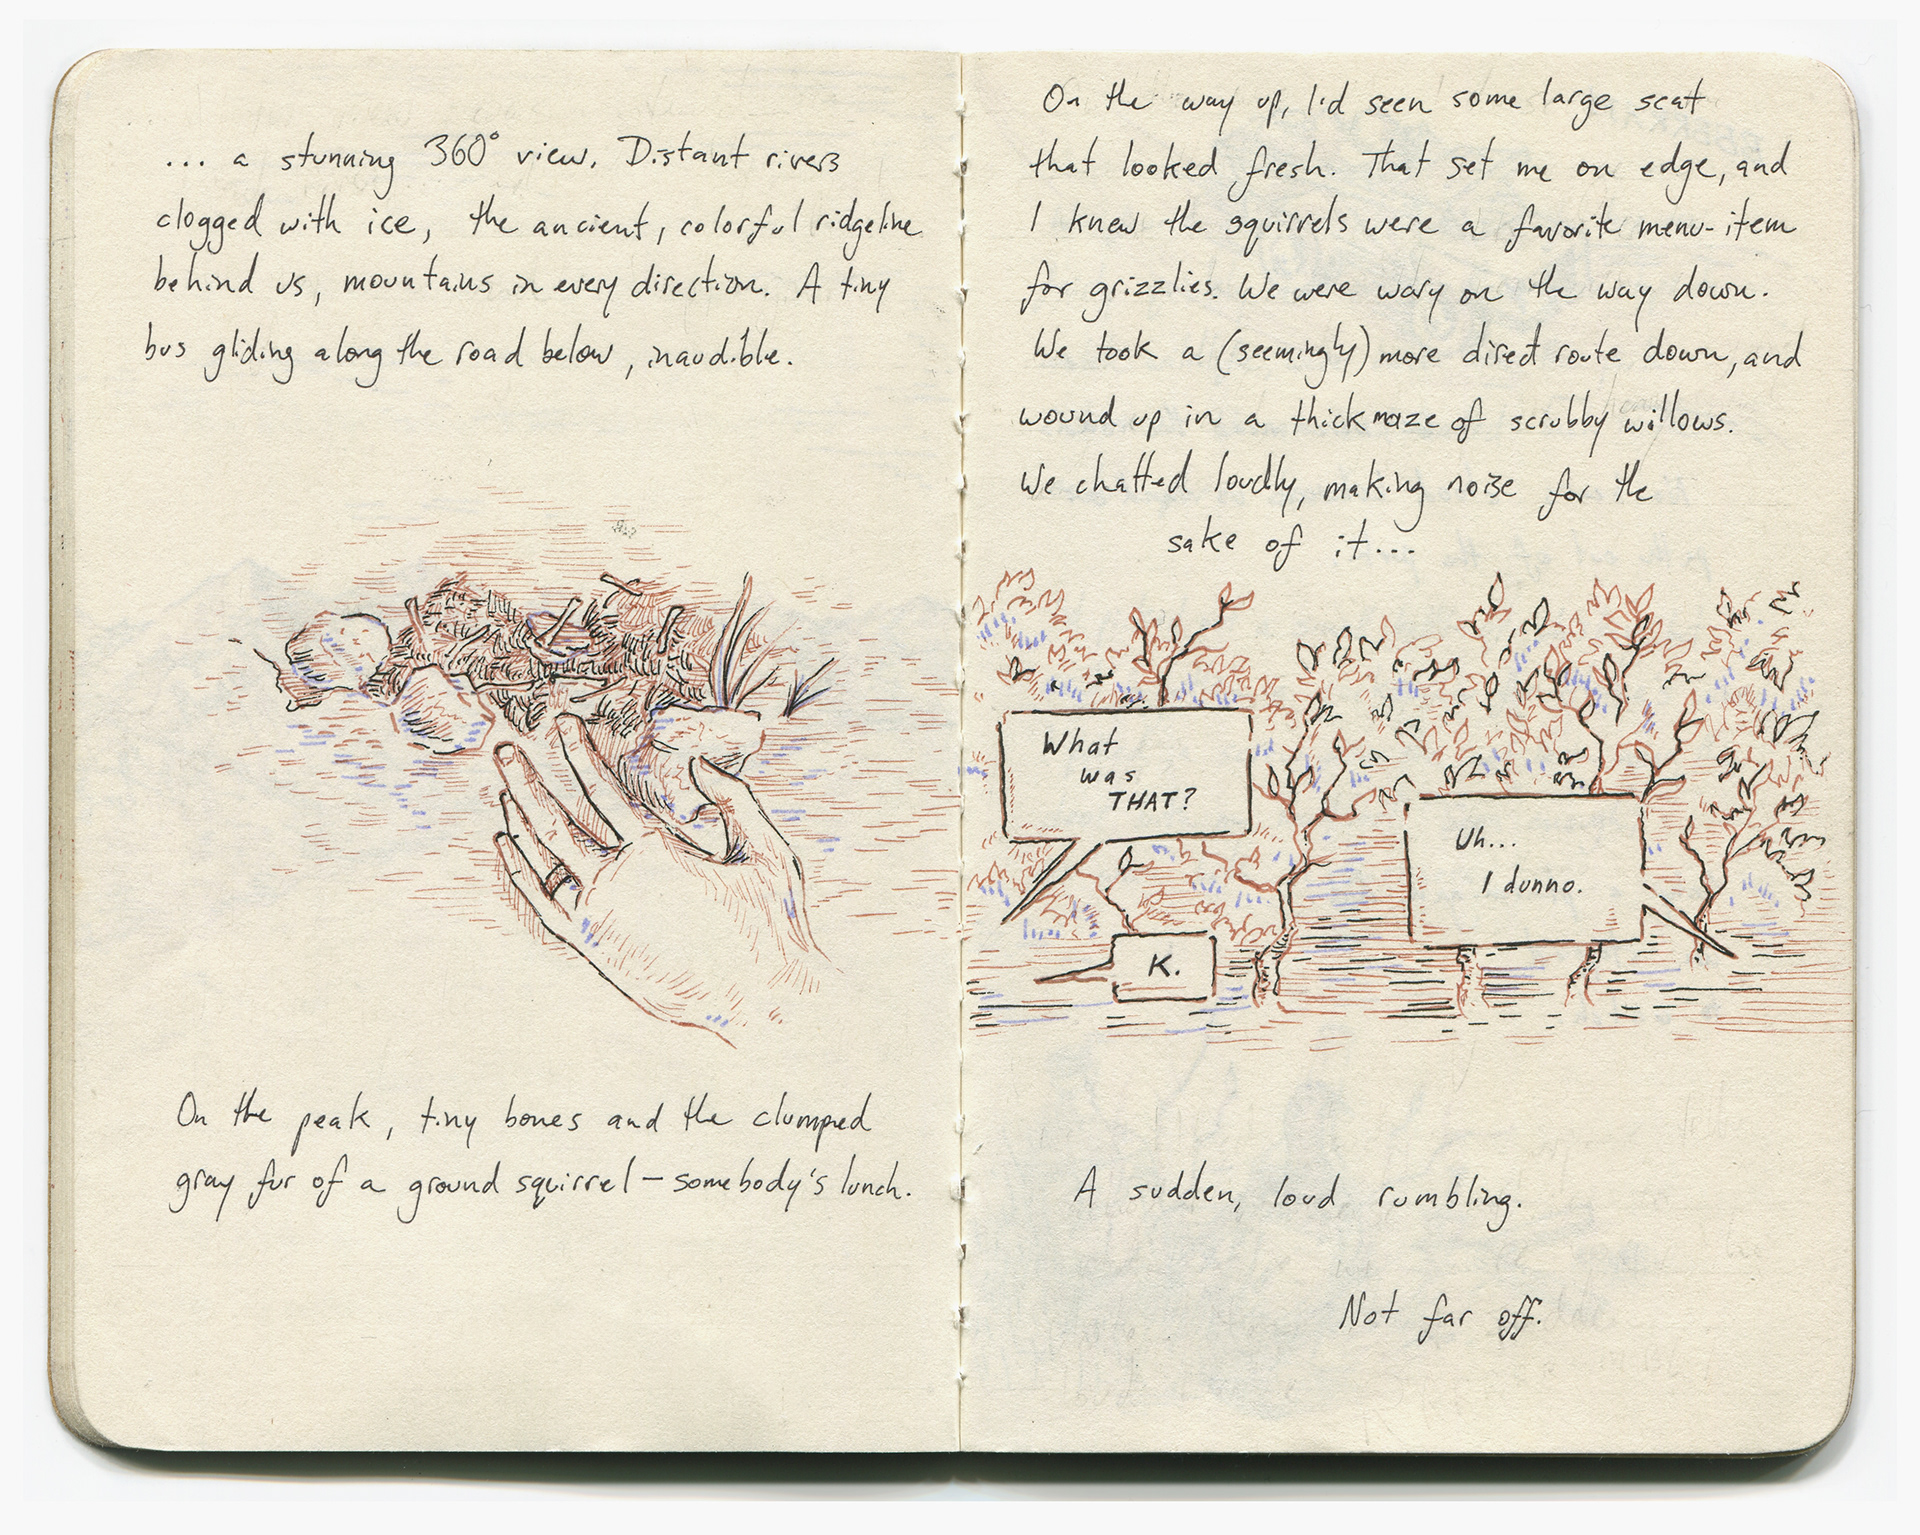 ... a stunning 360° view. Distant rivers
clogged with ice, the ancient, colorful ridgeline
behind us, mountains in every direction. A tiny
bus gliding along the road below, inaudible.
On the peak, tiny bones and the clumped
gray fur of a ground squirrel — somebody's lunch.
On the way up, I'd seen some large scat
that looked fresh. That set me on edge, and
I knew the squirrels were a favorite menu-item
for grizzlies. We were wary on the way down.
We took a (seemingly) more direct route down, and
wound up in a thick maze of scrubby willows.
We chatted loudly, making noise for the
sake of it...
What
was
THAT?
Uh...
I dunno.
K.
A sudden, loud rumbling.
Not far off.